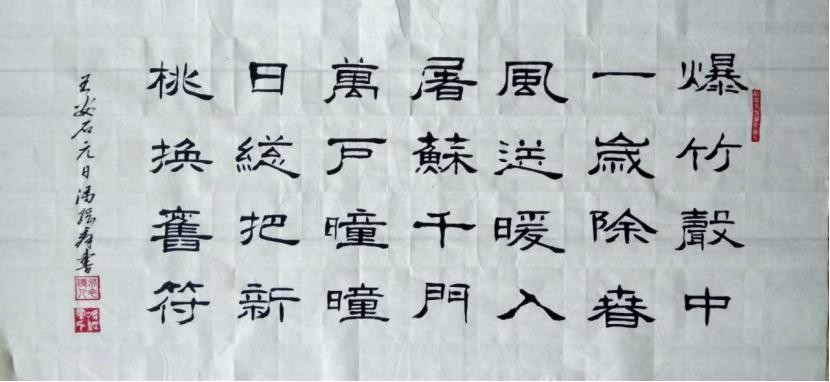 爆竹聲中
一歲除春
風送暖入
屠蘇千門
萬戸曈曈
日總把新
桃換舊符
王安石元日馮瑞壽書